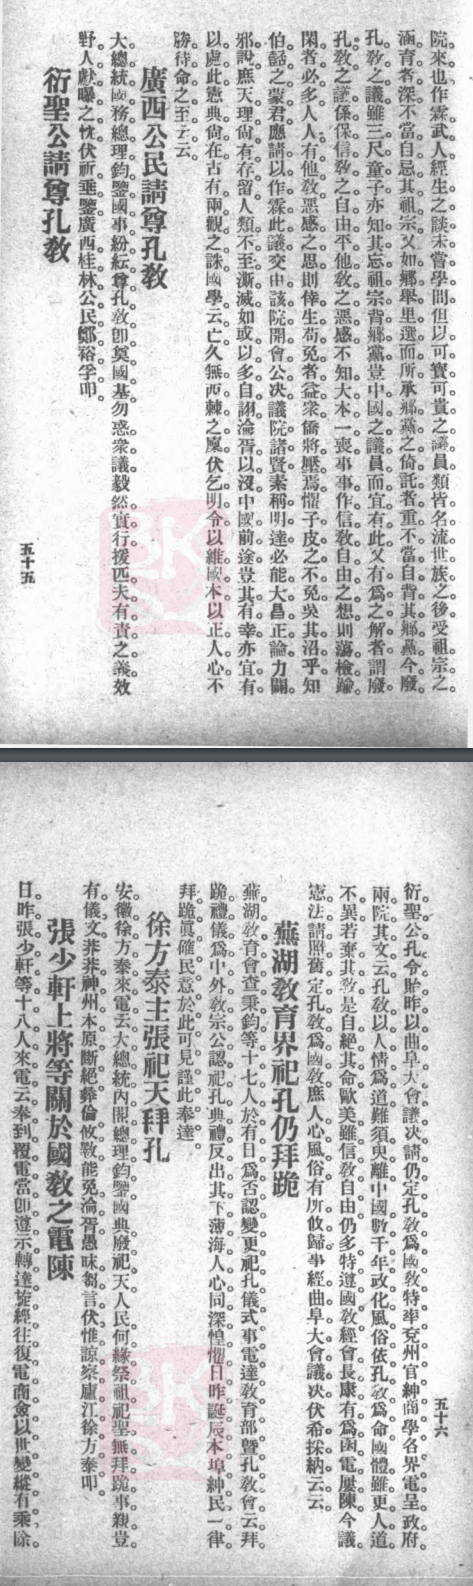 院來也作霖武人經生之談未嘗學問但以可寶可貴之議員類皆名流世族之後受祖宗之
涵育者深不當自忌其祖宗又如鄉舉里選而所承鄉黨之倚託者重不當自背其鄉黨今廢
孔教之議雖三尺童子亦知其忘祖宗背鄉黨豈中國之議員而宜有此又有爲之解者謂廢
孔教之謹係保信教之自由平他教之惡感不知大本一喪事事作信教自由之想則蕩檢踰
閑者必多人人有他教惡感之思則倖生苟免者益衆僑將壓焉懼子皮之不免吳其沼乎知
伯嚭之蒙君應請以作霖此議交由該院開會公决議院諸賢素稱明達必能大昌正論力闢
邪說庶天理尙有存留人類不至澌滅如或以多自詡淪胥以沒中國前途豈其有幸亦宜有
以處此憲典尙在古有兩觀之誅國學云亡久無西棘之廩伏乞明令以維國本以正人心不
勝待命之至云云
廣西公民請尊孔敎
大總統國務總理鈞鑒國事紛紜尊孔敎卽奠國基勿惑衆議毅然實行援匹夫有責之義效
野人獻曝之忱伏祈垂鑒廣西桂林公民鄭裕孚叩
衍聖公請尊孔敎
五十五
五十六
衍聖公孔令貽昨以曲阜大會議决請仍定孔敎爲國敎特率兗州官紳商學各界電呈政府
兩院其文云孔敎以人情爲道難須臾離中國數千年政化風俗依孔敎爲命國體雖更人道
不異若棄其敎是自絕其命歐美雖信敎自由仍多特遵國敎經會長康有爲函電屢陳今議
憲法請照舊定孔敎爲國敎庶人心風俗有所攸歸事經曲阜大會議决伏希採納云云
蕪湖敎育界祀孔仍拜跪
蕪湖敎育會查秉鈞等十七人於有日爲否認變更祀孔儀式事電達敎育部曁孔敎會云拜
跪禮儀爲中外敎宗公認祀孔典禮反出其下薄海人心同深惶懼日昨誕辰本埠紳民一律
拜跪眞傕民意於此可見謹此奉達
徐方泰主張祀天拜孔
安徽徐方泰來電云大總統內閣總理鈞鑒國典廢祀天人民何緣祭祖祀聖無拜跪事親豈
有儀文莽莽神州本原斷絕彝倫攸斁能免淪胥愚昧芻言伏惟諒察廬江徐方泰叩
張少軒上將等關於國敎之電陳
日昨張少軒等十八人來電云奉到覆電當卽遵示轉達旋經往復電商僉以世變縱有乘除